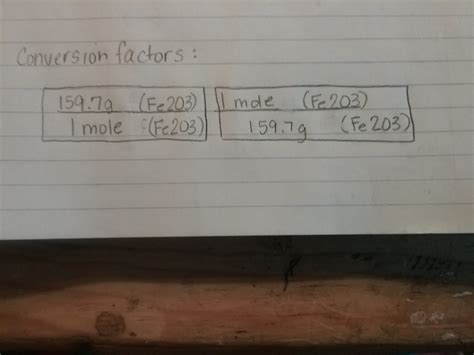 Conversion factors:
159.7g (Fe2O3) 1 mole (Fe2O3)
1 mole (Fe2O3) 159.7g (Fe2O3)